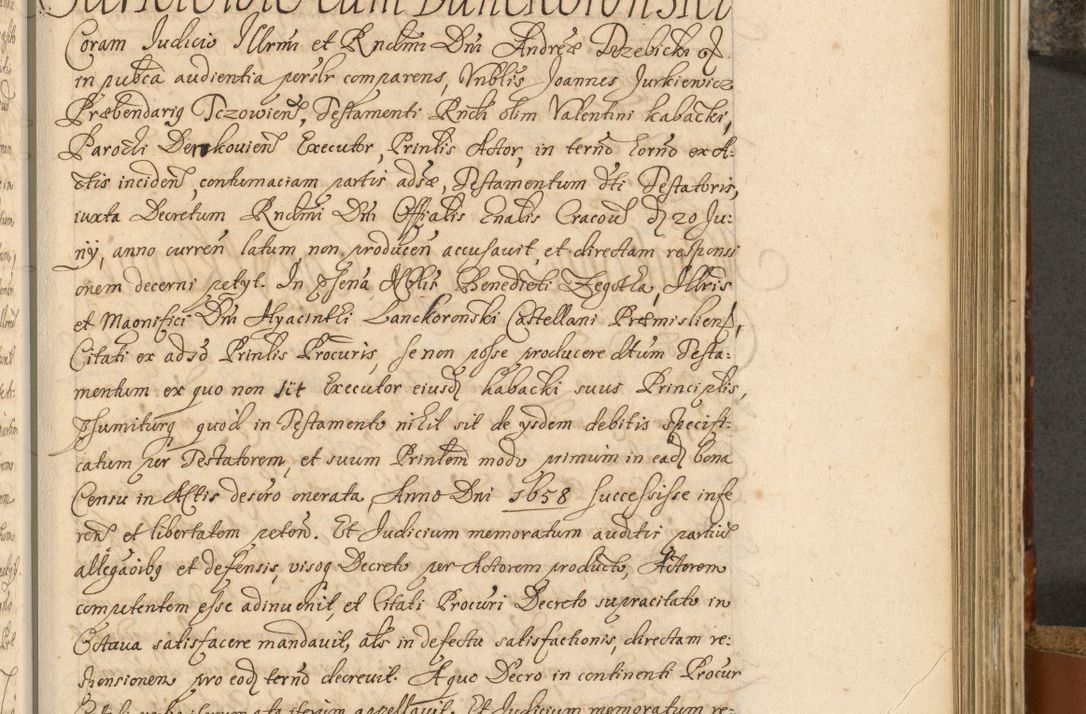 cum Lanckoronski
Coram Judicio Illrmi et Rndmi Dni Andreæ Trzebicki &
in pubca audientia perslr comparens, Vnblis Joannes Jurkiewicz
Præbendarig Tczowien, Testamenti Rndi olim Valentini Kabacki,
Parochi Derskovien Executor, Printis Actor, in terno horno ex A-
ctis inciden, contumaciam partis adsæ, Testamentum dti Testatoris,
iuxta Decretum Rndmi Dni Offialis Gnalis Cracov d 20 Ju:
ny, anno curren latum, non producen accusavit, et directam responsi
onem decerni petyt. In psena Nblis Benedicti Zegotta, Illris
et Magnifici Dni Hyacinthi Lanckoronski Castellani Præmislien,
Citati ex adso Printis Procuris, se non posse producere dtum Testa:
mentum ex quo non sit Executor eiusd Kabacki suus Principlis,
psumiturq quod in Testamento nihil sit de ysdem debitis specifi:
catum per Testatorem, et suum Printem modo primum in ead bona
Censu in Actis descro onerata Anno Dni 1658 successisse infe
ren et libertatem peten. Et Judicium memoratum auditis partiu
allegaoibq et defensis, visoq Decreto per Actorem producto, Actorem
computentem esse adinvenit, et Citati Procuri Decreto supracitato in
Octava satisfacere mandavit, als in defectu satisfactionis, directam re:
sponsionem pro eod terno decrevit. A quo Decro in continenti Procur
appellavit. Et Judicium memoratum re-